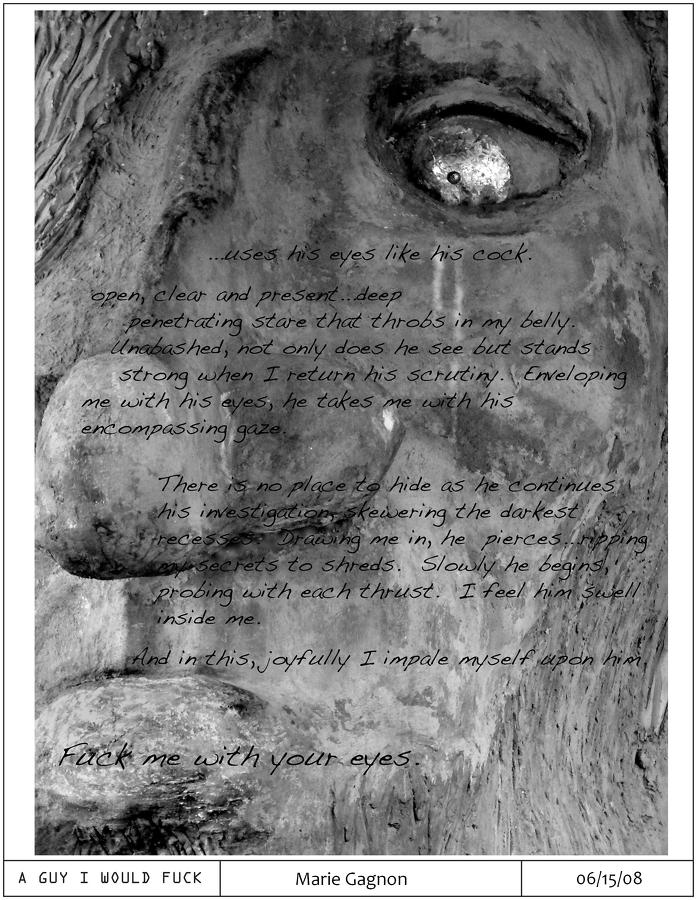 ...uses his eyes like his cock.
open, clear and present...deep
penetrating stare that throbs in my belly.
Unabashed, not only does he see but stands
strong when I return his scrutiny. Enveloping
me with his eyes, he takes me with his
encompassing gaze.
There is no place to hide as he continues
his investigation, skewering the darkest
recesses. Drawing me in, he pierces...ripping
my secrets to shreds. Slowly he begins,
probing with each thrust. I feel him swell
inside me.
And in this, joyfully I impale myself upon him.
Fuck me with your eyes.
A GUY I WOULD FUCK
Marie Gagnon
06/15/08